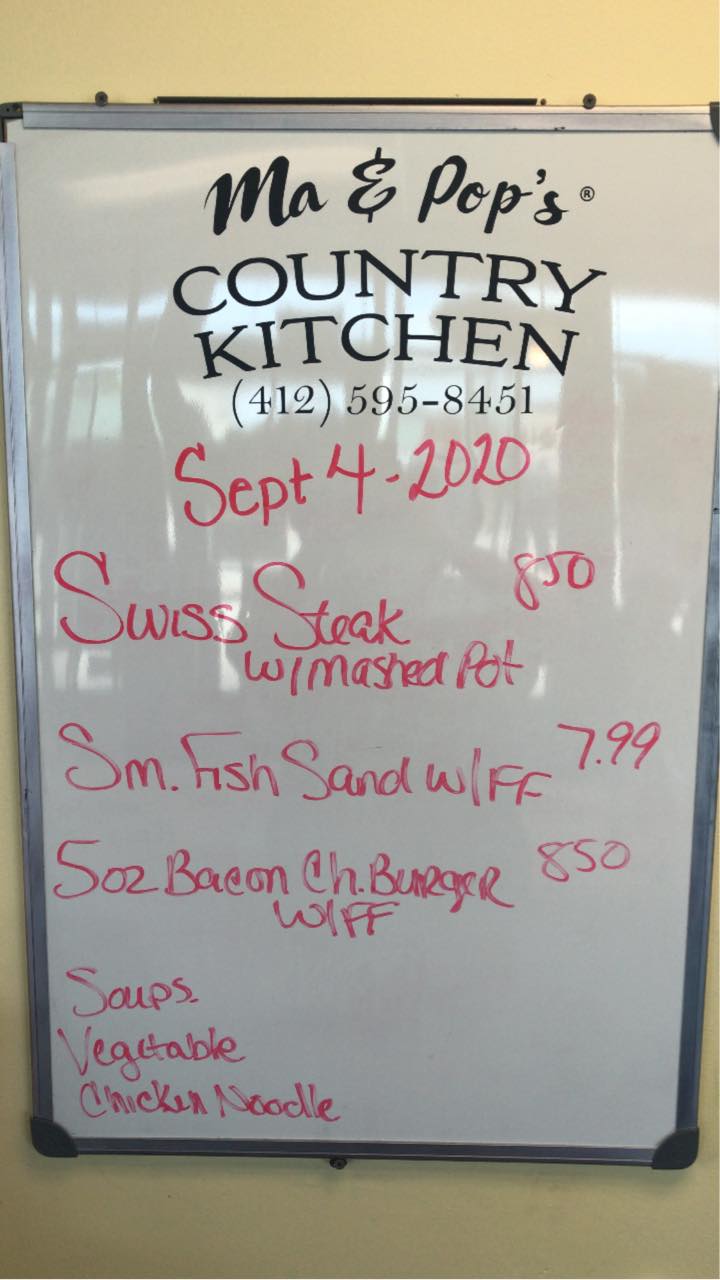 Ma & Pop's®
COUNTRY
KITCHEN
(412) 595-8451
Sept 4-2020
Swiss Steak 850
w/mashed Pot
Sm. Fish Sand w/FF 7.99
5oz Bacon Ch. Burger 850
w/FF
Soups.
Vegetable
Chicken Noodle